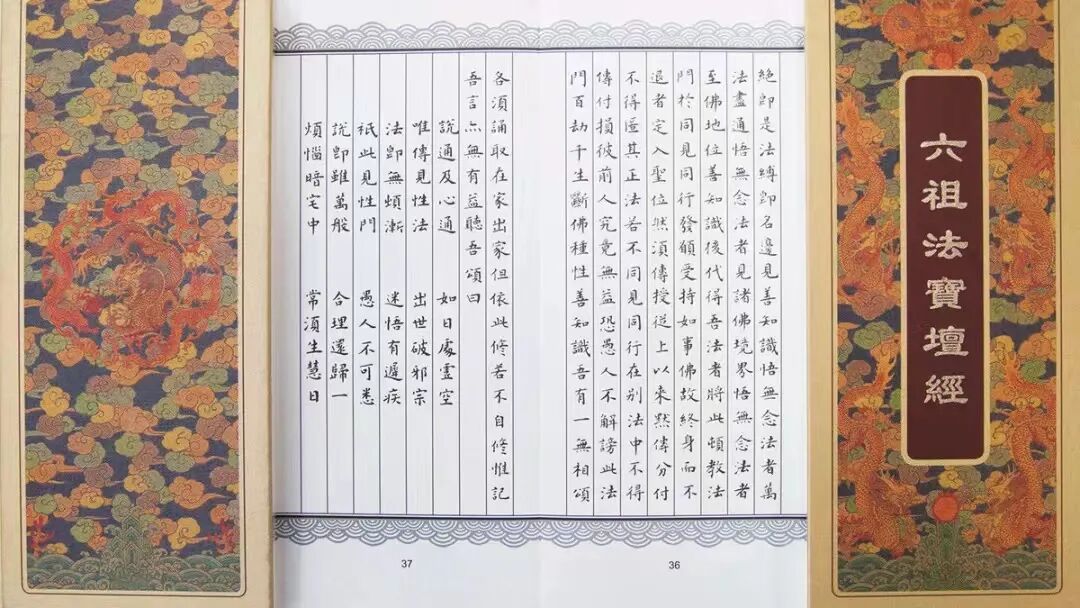 六祖法寶壇經
絕即是法縛即名邊見善知識悟無念法者萬
法盡通悟無念法者見諸佛境界悟無念法者
至佛地位善知識後代得吾法者將此頓教法
門於同見同行發願受持如事佛故終身而不
退者定入聖位然須傳授從上以來默傳分付
不得匿其正法若不同見同行在別法中不得
傳付損彼前人究竟無益恐愚人不解謗此法
門百劫千生斷佛種性善知識吾有一無相頌
36
各須誦取在家出家但依此修若不自修惟記
吾言亦無有益聽吾頌曰
說通及心通 如日處虛空
唯傳見性法 出世破邪宗
法即無頓漸 迷悟有遲疾
衹此見性門 愚人不可悉
說即雖萬般 合理還歸一
煩惱暗宅中 常須生慧日
37